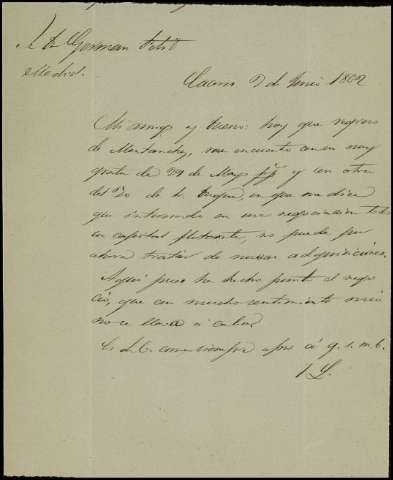 Dn German
Madrid.
Caceres 9 de Junio 1862
Mi amigo y Señor: hoy que regreso
de Montanchez, me encuentro con su muy
grata de 29 de Mayo ppº y con otra
del 20 de la en que me dice
que interesado en una negociacion
su capital flotante, no puede por
ahora tratar de nuevas adquisiciones.
Aqui pues ha hecho punto el nego
cio, que con mucho sentimiento mio
no se lleva á cabo.
Es de V. como siempre afmo. q. s. m. b.